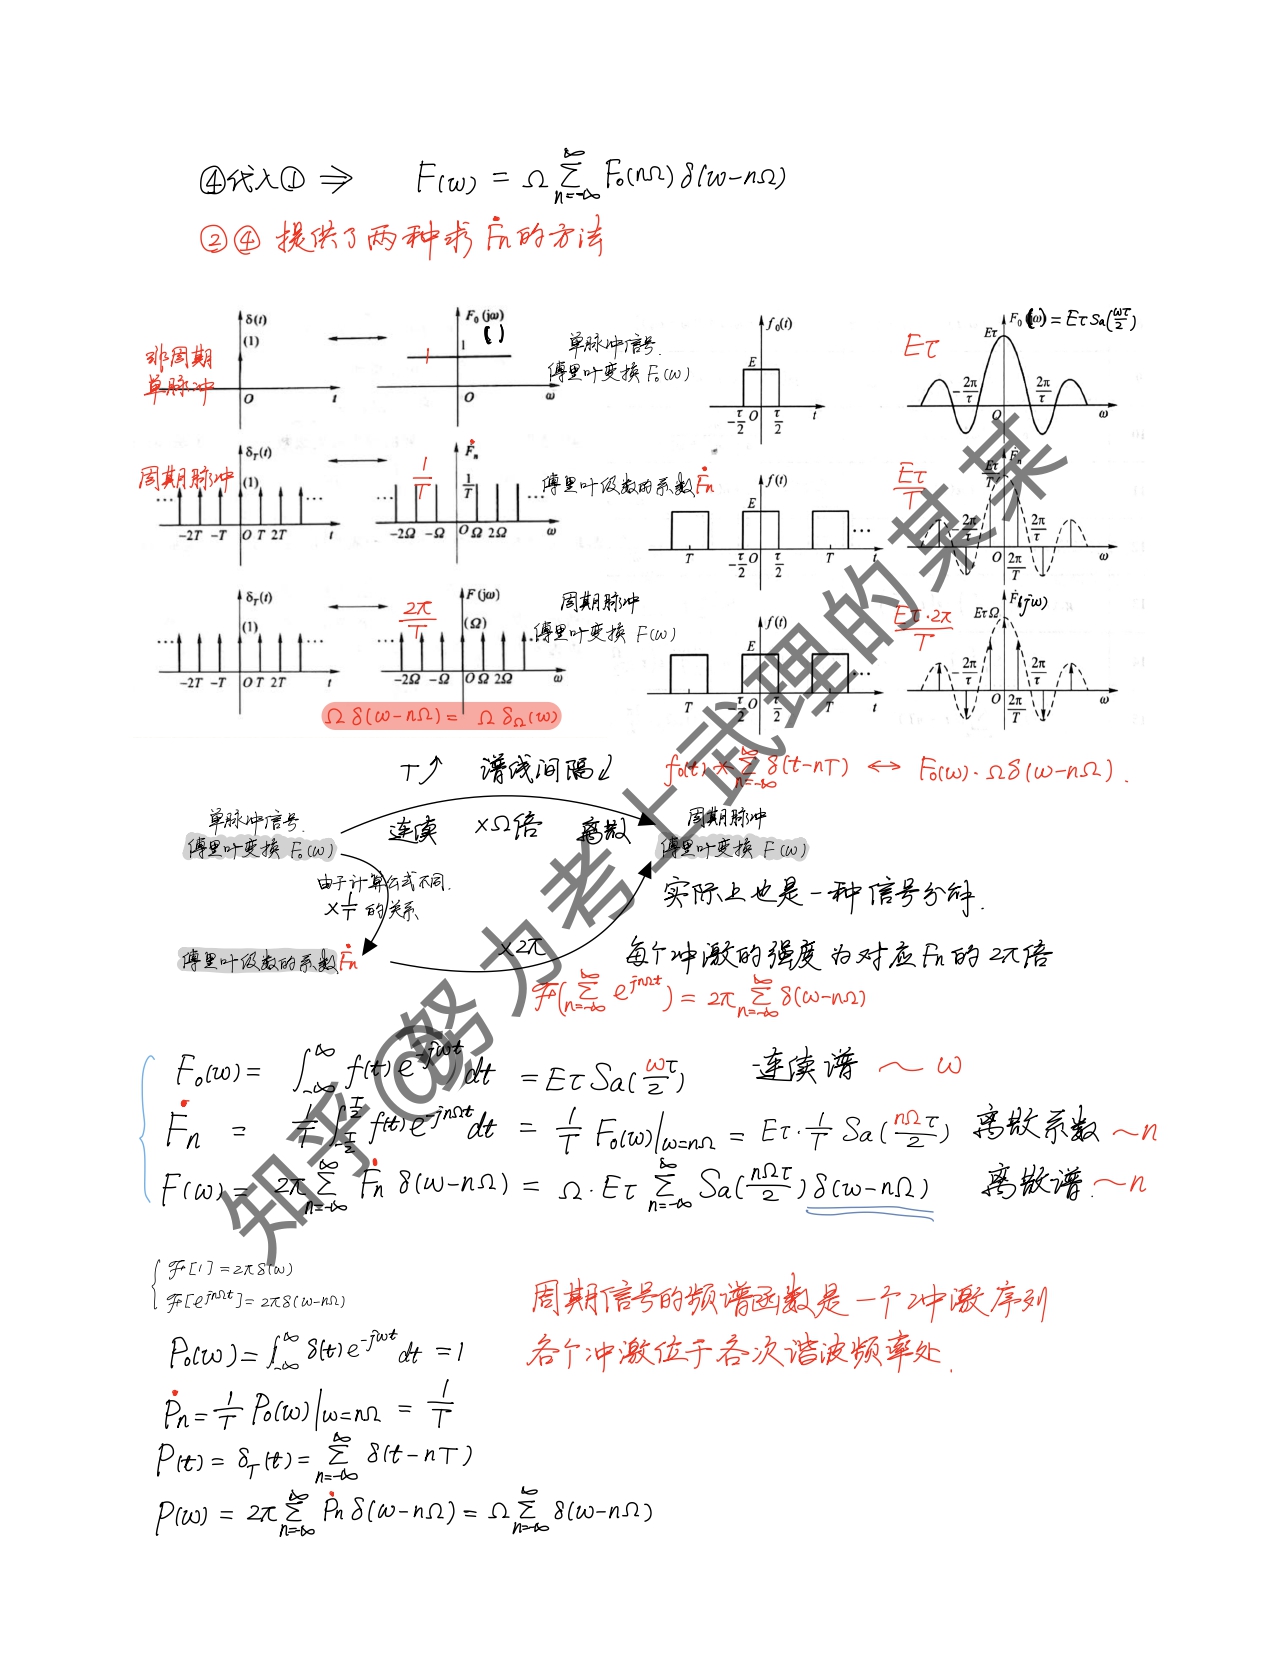 ④代入① ⇒ F(ω) = Ω ∑_{n=-∞}^{∞} F₀(nΩ) δ(ω-nΩ)
②④ 提供了两种求 Ḟn 的方法
非周期
单脉冲
δ(t)
(1)
O t
F₀(jω)
( )
1
1
O ω
单脉冲信号.
傅里叶变换 F₀(ω)
f₀(t)
E
-τ/2 O τ/2 t
Eτ
F₀(jω) = EτSa(ωτ/2)
Eτ
-2π/τ 2π/τ
O ω
周期脉冲
δ_T(t)
(1)
… …
-2T -T O T 2T t
Ḟn
1/T
1/T
… …
-2Ω -Ω O Ω 2Ω ω
傅里叶级数的系数 Ḟn
f(t)
E
…
T -τ/2 O τ/2 T t
Eτ/T
Ḟn
Eτ/T
-2π/τ 2π/τ
O 2π/T ω
δ_T(t)
(1)
… …
-2T -T O T 2T t
F(jω)
2π/T
(Ω)
… …
-2Ω -Ω O Ω 2Ω ω
周期脉冲
傅里叶变换 F(ω)
f(t)
E
…
T -τ/2 O τ/2 T t
Eτ·2π/T
F(jω)
EτΩ
-2π/τ 2π/τ
O 2π/T ω
Ω δ(ω-nΩ) = Ω δ_Ω(ω)
T↗ 谱线间隔↙
f₀(t) * ∑_{n=-∞}^{∞} δ(t-nT) ↔ F₀(ω)·Ωδ(ω-nΩ).
单脉冲信号.
傅里叶变换 F₀(ω)
连续 ×Ω倍 离散
周期脉冲
傅里叶变换 F(ω)
由于计算公式不同.
×1/T 的关系
实际上也是一种信号分解.
傅里叶级数的系数 Ḟn
×2π
每个冲激的强度为对应Fn的2π倍
ℱ(∑_{n=-∞}^{∞} e^{jnΩt}) = 2π∑_{n=-∞}^{∞} δ(ω-nΩ)
F₀(ω) = ∫_{-∞}^{∞} f(t)e^{-jωt}dt = EτSa(ωτ/2) 连续谱 ~ω
Ḟn = 1/T ∫_{-T/2}^{T/2} f(t)e^{-jnΩt}dt = 1/T F₀(ω)|ω=nΩ = Eτ·1/T Sa(nΩτ/2) 离散系数 ~n
F(ω) = 2π∑_{n=-∞}^{∞} Ḟn δ(ω-nΩ) = Ω·Eτ ∑_{n=-∞}^{∞} Sa(nΩτ/2) δ(ω-nΩ) 离散谱. ~n
ℱ[1] = 2πδ(ω)
ℱ[e^{jnΩt}] = 2πδ(ω-nΩ)
周期信号的频谱函数是一个冲激序列
各个冲激位于各次谐波频率处.
P₀(ω) = ∫_{-∞}^{∞} δ(t)e^{-jωt}dt = 1
Ṗn = 1/T P₀(ω)|ω=nΩ = 1/T
P(t) = δ_T(t) = ∑_{n=-∞}^{∞} δ(t-nT)
P(ω) = 2π∑_{n=-∞}^{∞} Ṗn δ(ω-nΩ) = Ω∑_{n=-∞}^{∞} δ(ω-nΩ)
知乎@努力考上武理的某某